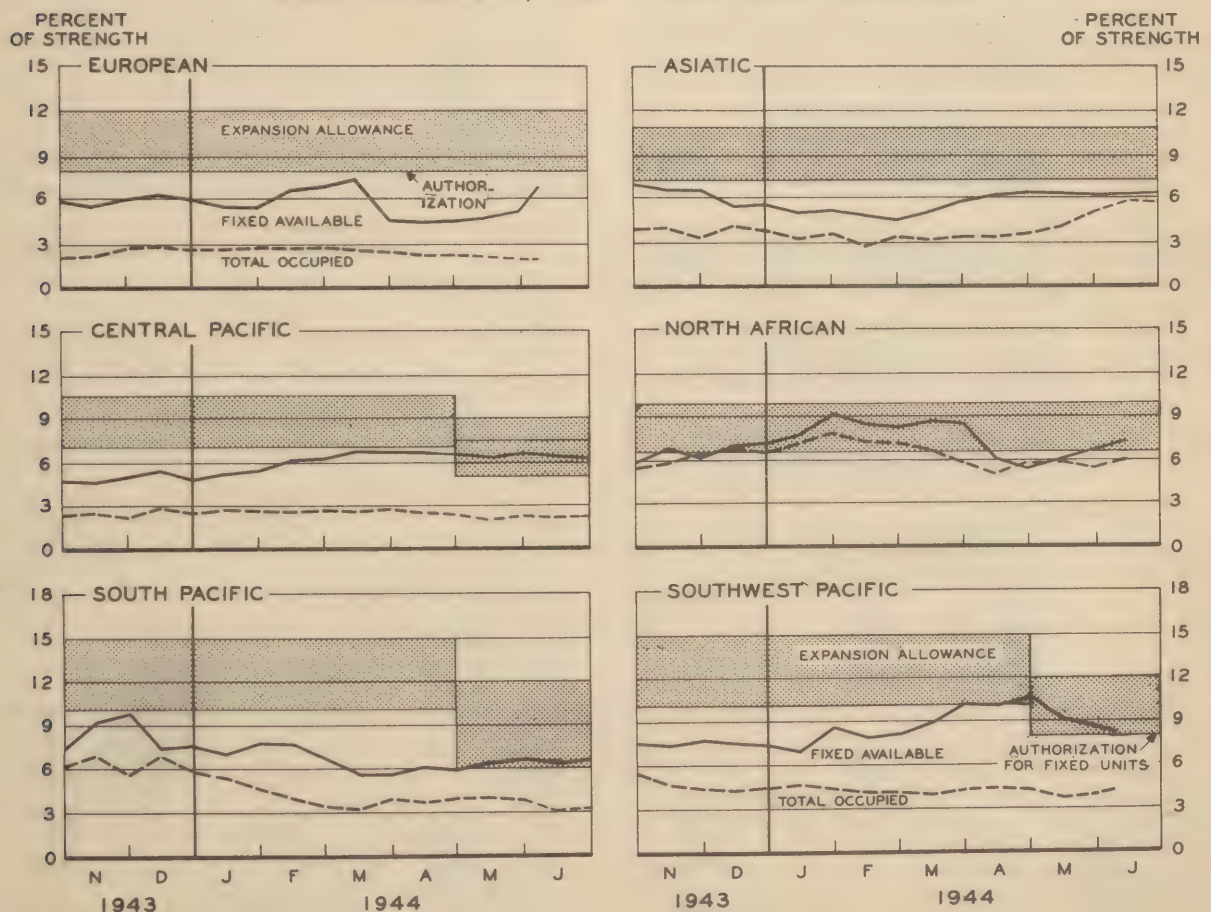 PERCENT
OF STRENGTH
PERCENT
OF STRENGTH
EUROPEAN
15
12
9
6
3
0
EXPANSION ALLOWANCE
AUTHOR-
IZATION
FIXED AVAILABLE
TOTAL OCCUPIED
ASIATIC
15
12
9
6
3
0
CENTRAL PACIFIC
15
12
9
6
3
0
NORTH AFRICAN
15
12
9
6
3
0
SOUTH PACIFIC
18
15
12
9
6
3
0
N D J F M A M J
1943 1944
SOUTHWEST PACIFIC
18
15
12
9
6
3
0
EXPANSION ALLOWANCE
FIXED AVAILABLE
AUTHORIZATION
FOR FIXED UNITS
TOTAL OCCUPIED
N D J F M A M J
1943 1944